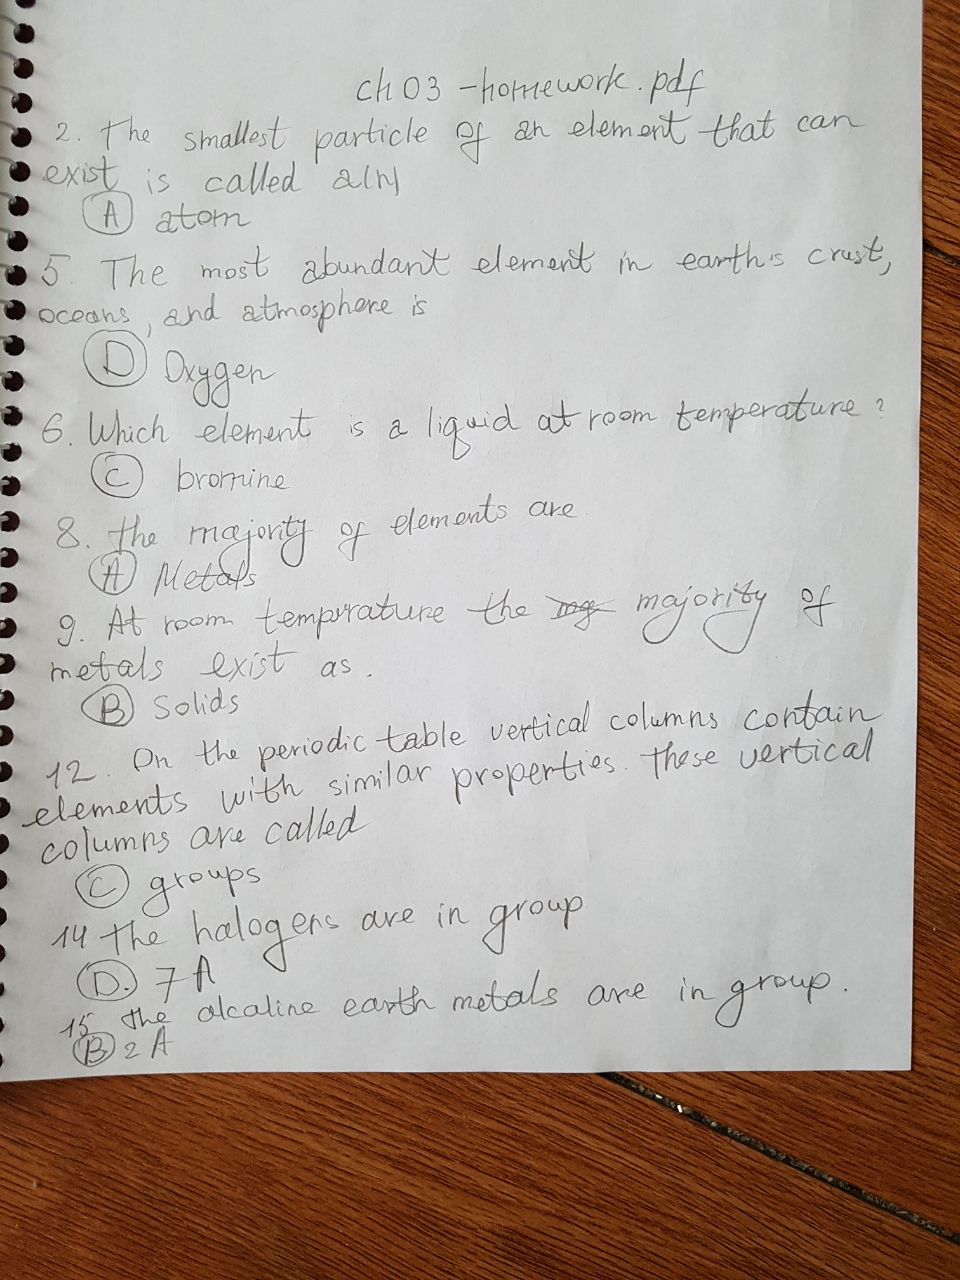 ch 03 - homework.pdf
2. The smallest particle of an element that can
exist is called a(n)
A atom
5. The most abundant element in earth's crust,
oceans, and atmosphere is
D Oxygen
6. Which element is a liquid at room temperature?
C bromine
8. the majority of elements are
A Metals
9. At room temprature the majority of
metals exist as.
B Solids
12. On the periodic table vertical columns contain
elements with similar properties. These vertical
columns are called
C groups
14 The halogens are in group
D. 7A
15 the alcaline earth metals are in group.
B 2 A